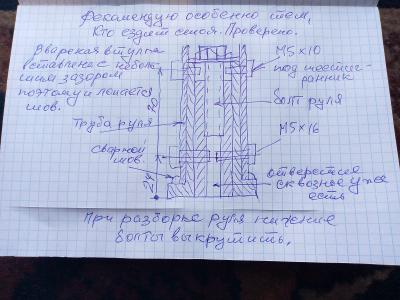 Рекомендую особенно тем,
Кто ездит стоя. Проверено.
Вварская втулка
вставлена с неболь-
шим зазором
поэтому и ломается
шов.
M5×10
под шестиг-
ранник
болт руля
20
Труба руля
M5×16
Сварной
шов.
24
отверстие
сквозное уже
есть
При разборке руля нижние
болты выкрутить.